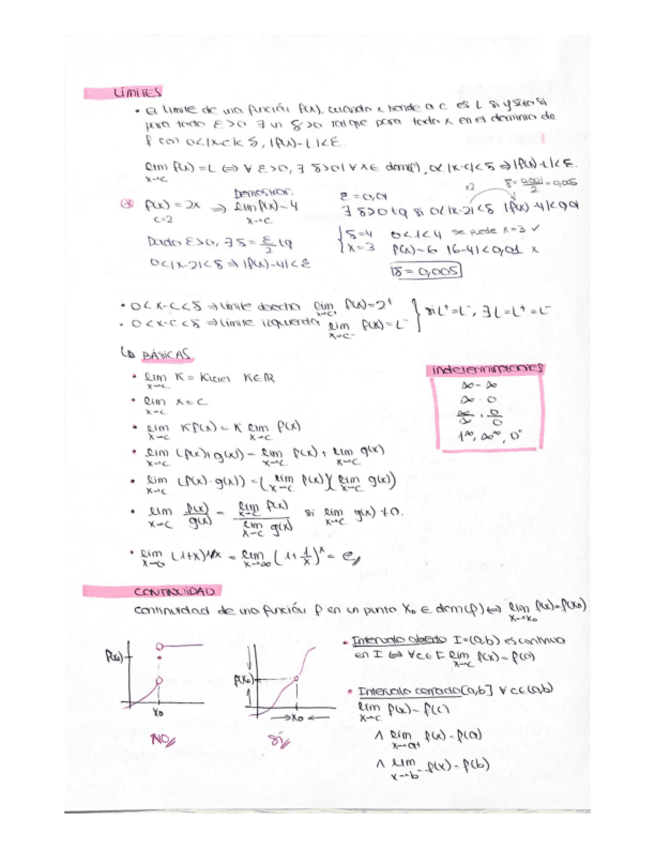 LÍMITES
• El límite de una función f(x), cuando x tiende a c es L si y solo si
para todo ε>0 ∃ un δ>0 tal que para todo x en el dominio de
f con 0<|x-c|<δ, |f(x)-L|<ε.
lim x→c f(x) = L ⟺ ∀ ε>0, ∃ δ>0 / ∀x∈ dom(f), 0<|x-c|<δ ⇒ |f(x)-L|<ε.
f(x) = 2x ⇒ Demostrar: lim x→c f(x) = 4
c=2
Dado ε>0, ∃ δ = ε/2 tq
0<|x-2|<δ ⇒ |f(x)-4|<ε
ε = 0,01
x2 δ = 0,001/2 = 0,005
∃ δ>0 tq si 0<|x-2|<δ |f(x)-4|<0,01
δ=4 0<1<4 se puede x=3 ✓
x=3 f(x)=6 |6-4|<0,01 x
δ = 0,005
• 0<x-c<δ ⇒ límite derecho lim x→c⁺ f(x) = L⁺
• 0<x-c<δ ⇒ límite izquierdo lim x→c⁻ f(x) = L⁻
} si L⁺=L⁻, ∃ L=L⁺=L⁻
↳ BÁSICAS
• lim x→c K = K K∈ℝ
• lim x→c x = c
• lim x→c Kf(x) = K lim x→c f(x)
• lim x→c (f(x)+g(x)) = lim x→c f(x) + lim x→c g(x)
• lim x→c (f(x)·g(x)) = (lim x→c f(x))(lim x→c g(x))
• lim x→c f(x)/g(x) = lim x→c f(x) / lim x→c g(x) si lim x→c g(x) ≠ 0.
• lim x→0 (1+x)^1/x = lim x→∞ (1+1/x)^x = e
indeterminaciones
∞ - ∞
∞ · 0
∞/∞ , 0/0
1^∞, ∞^∞, 0°
CONTINUIDAD
Continuidad de una función f en un punto x₀ ∈ dom(f) ⟺ lim x→x₀ f(x) = f(x₀)
f(x₀)
x₀
NO
f(x₀)
→x₀←
SÍ
• Intervalo abierto I=(a,b) es continuo
en I ⟺ ∀c∈I lim x→c f(x) = f(c)
• Intervalo cerrado [a,b] ∀ c∈(a,b)
lim x→c f(x) = f(c)
∧ lim x→a⁺ f(x) = f(a)
∧ lim x→b⁻ f(x) = f(b)